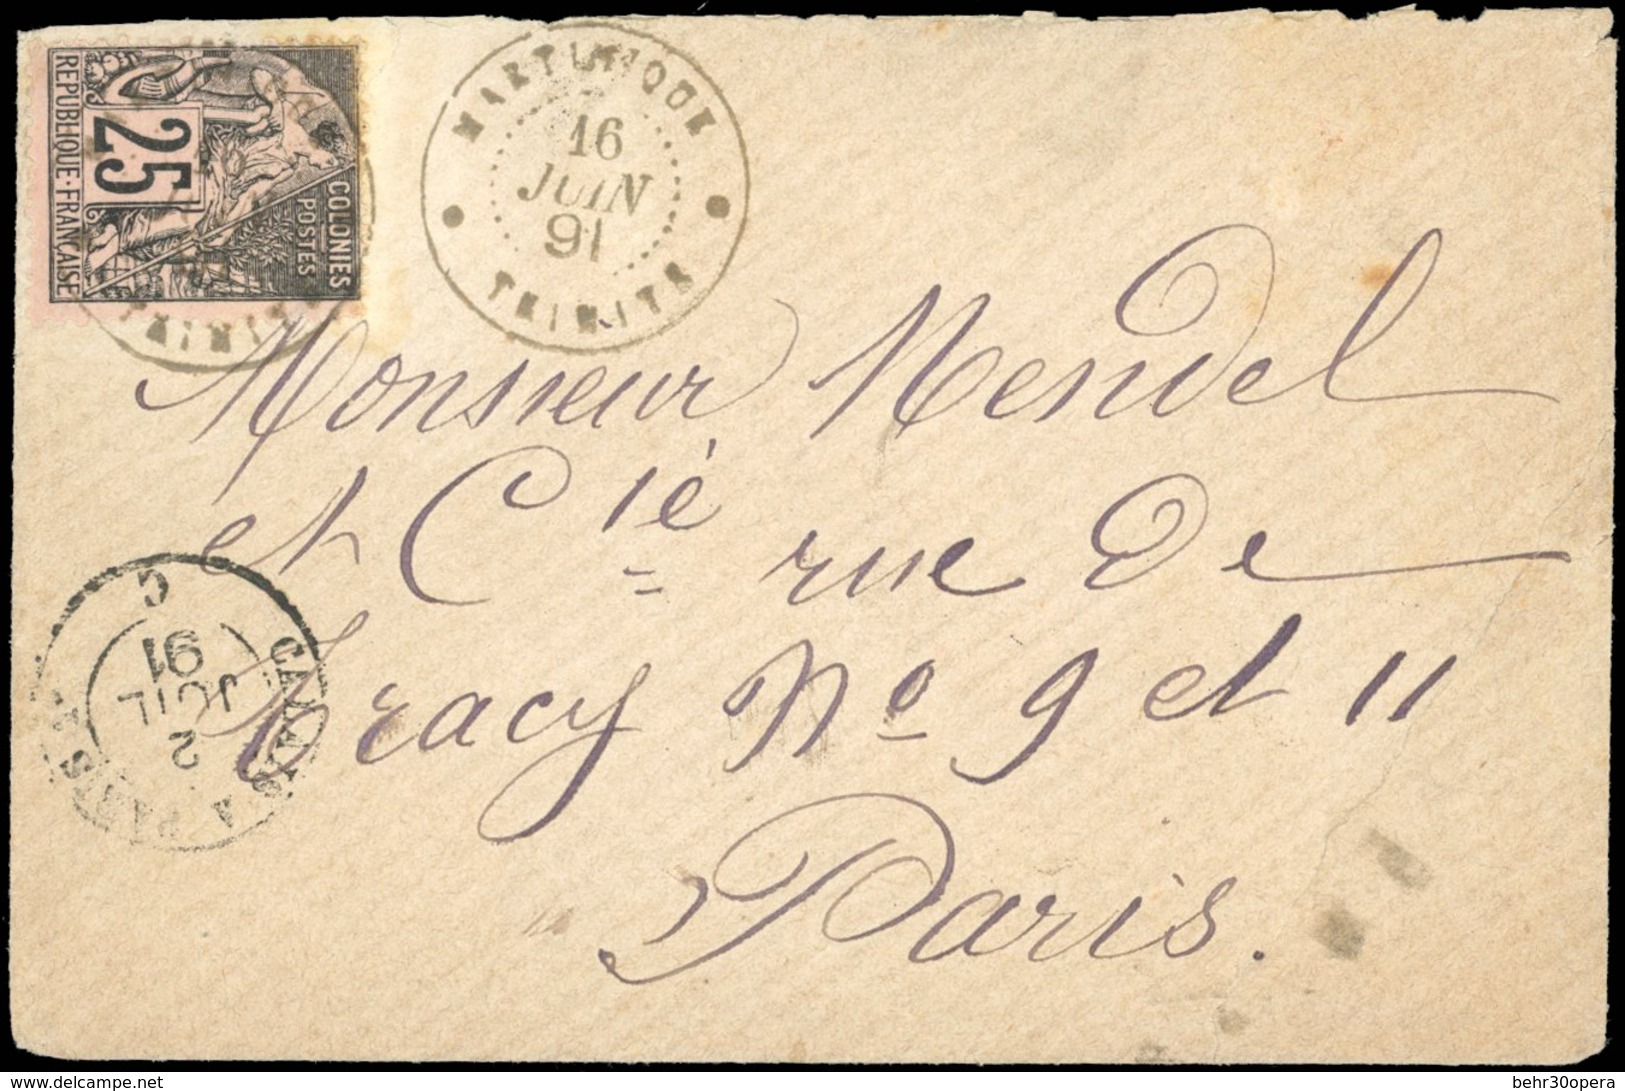 COLONIES
POSTES
25
REPUBLIQUE·FRANÇAISE
MARTINIQUE
16
JUIN
91
TRINITE
Monsieur Mendel
et Cie rue de
Tracy No 9 et 11
Paris.
CALAIS A PARIS
2
JUIL
91
delcampe.net
behr30opera